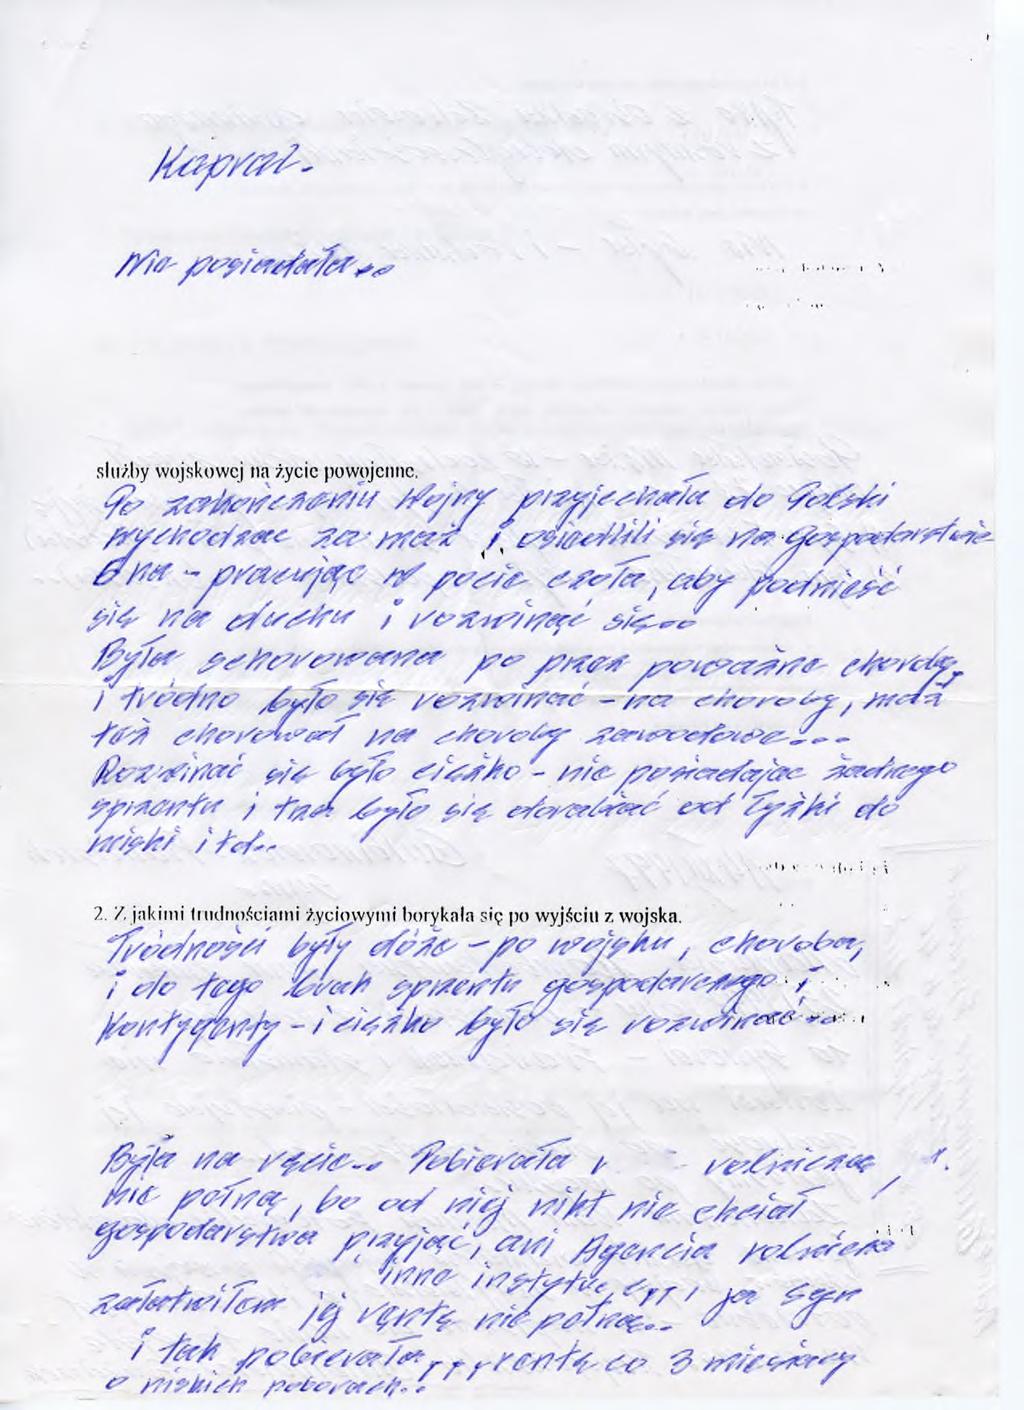 Kapral.
Nie posiadała..
służby wojskowej na życie powojenne.
Po zakończeniu Wojny przyjechała do Polski
wychodząc za mąż i osiedlili się na gospodarstwie
6 ha - pracując w pocie czoła, aby podnieść
się na duchu i rozwinąć się...
Była schorowana po przez poważne choroby
i tródno było się rozwinać - na choroby, mąż
też chorował na choroby zawodowe...
Rozwinać się było ciężko - nie posiadając żadnego
sprzentu i tza było się dorabiać od łyżki do
miski itd..
2. Z jakimi trudnościami życiowymi borykała się po wyjściu z wojska.
Tródności były dóże - po wojsku, choroba,
i do tego brak sprzentu gospodarczego i
kontygenty - i ciężko było się rozwinać...
Była na ręcie.. Pobierała r rolniczą,
nie połną, bo od niej nikt nie chciał
gospodarstwa przyjąć, ani Agencia rolnicza
inne
załatwiłem jej rętę nie połną.. ja Syn
i tak pobierała,,,, rentę co 3 miesiący
o niskich poborach..